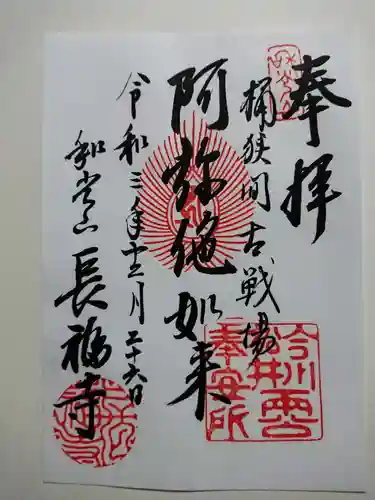 奉拝
桶狭間古戦場
阿弥陀如来
令和三年十二月二十六日
和光山長福寺
今川
松井
奉安所